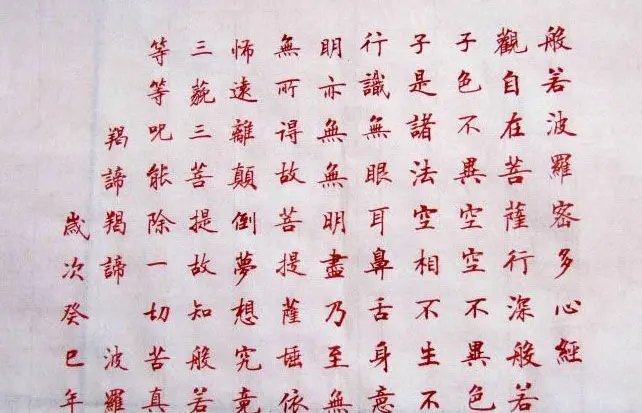 般若波羅密多心經
觀自在菩薩行深般若
子色不異空空不異色
子是諸法空相不生不
行識無眼耳鼻舌身意
明亦無無明盡乃至無
無所得故菩提薩埵依
怖遠離顛倒夢想究竟
三藐三菩提故知般若
等等呪能除一切苦真
羯諦羯諦 波羅
歲次癸巳年